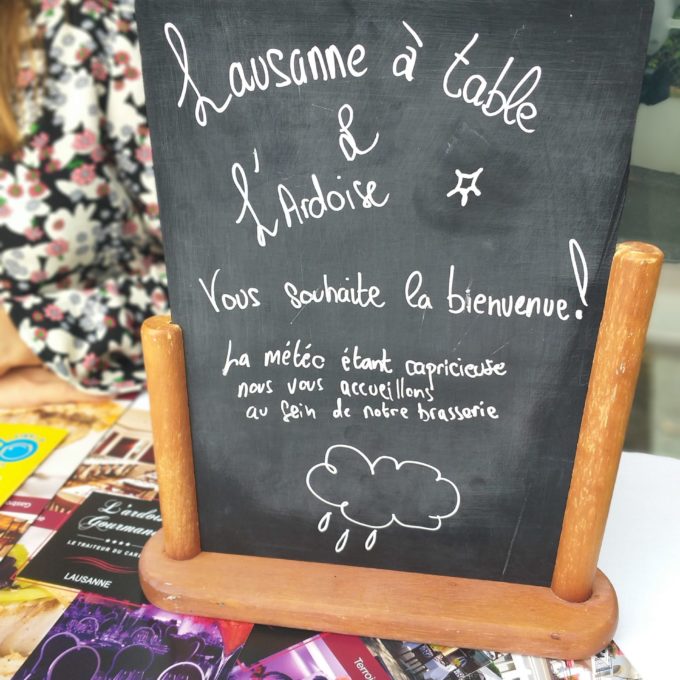 Lausanne à table
&
L'Ardoise
Vous souhaite la bienvenue!
La météo étant capricieuse
nous vous accueillons
au sein de notre brasserie
L'ardoise
Gourmande
LE TRAITEUR DU
LAUSANNE